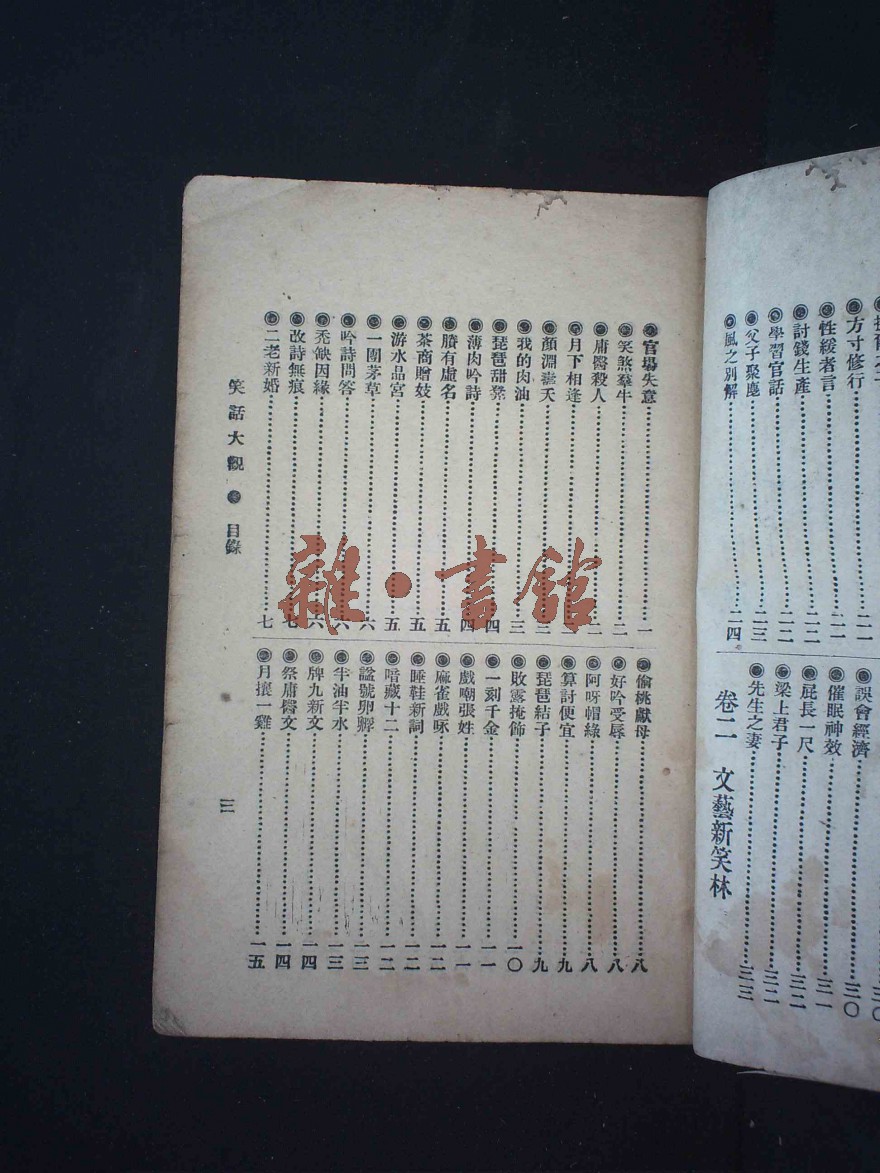 方寸修行 二一
性緩者言 二一
討錢生產 二二
學習官話 二二
父子聚麀 二三
風之別解 二四
誤會經濟 三〇
催眠神效 三一
屁長一尺 三二
梁上君子 三二
先生之妻 三三
卷二 文藝新笑林
官場失意 一
笑煞羣牛 二
庸醫殺人 二
月下相逢
顏淵壽天 三
我的肉油 三
琵琶甜凳 四
薄肉吟詩 四
賸有虛名 五
茶商贈妓 五
游水品宮 五
一團茅草 六
吟詩問答 六
禿缺因緣 六
改詩無痕 七
二老新婚 七
偷桃獻母 八
好吟受辱 八
阿呀帽綠 八
算討便宜 九
琵琶結子 九
敗露掩飾 一〇
一刻千金 一一
戲嘲張姓 一一
麻雀戲咏 一二
睡鞋新詞 一二
暗藏十二 一二
謚號卵孵 一三
半油半水 一三
牌九新文 一四
祭庸醫文 一四
月攘一雞 一五
笑話大觀 目錄
三
雜·書館